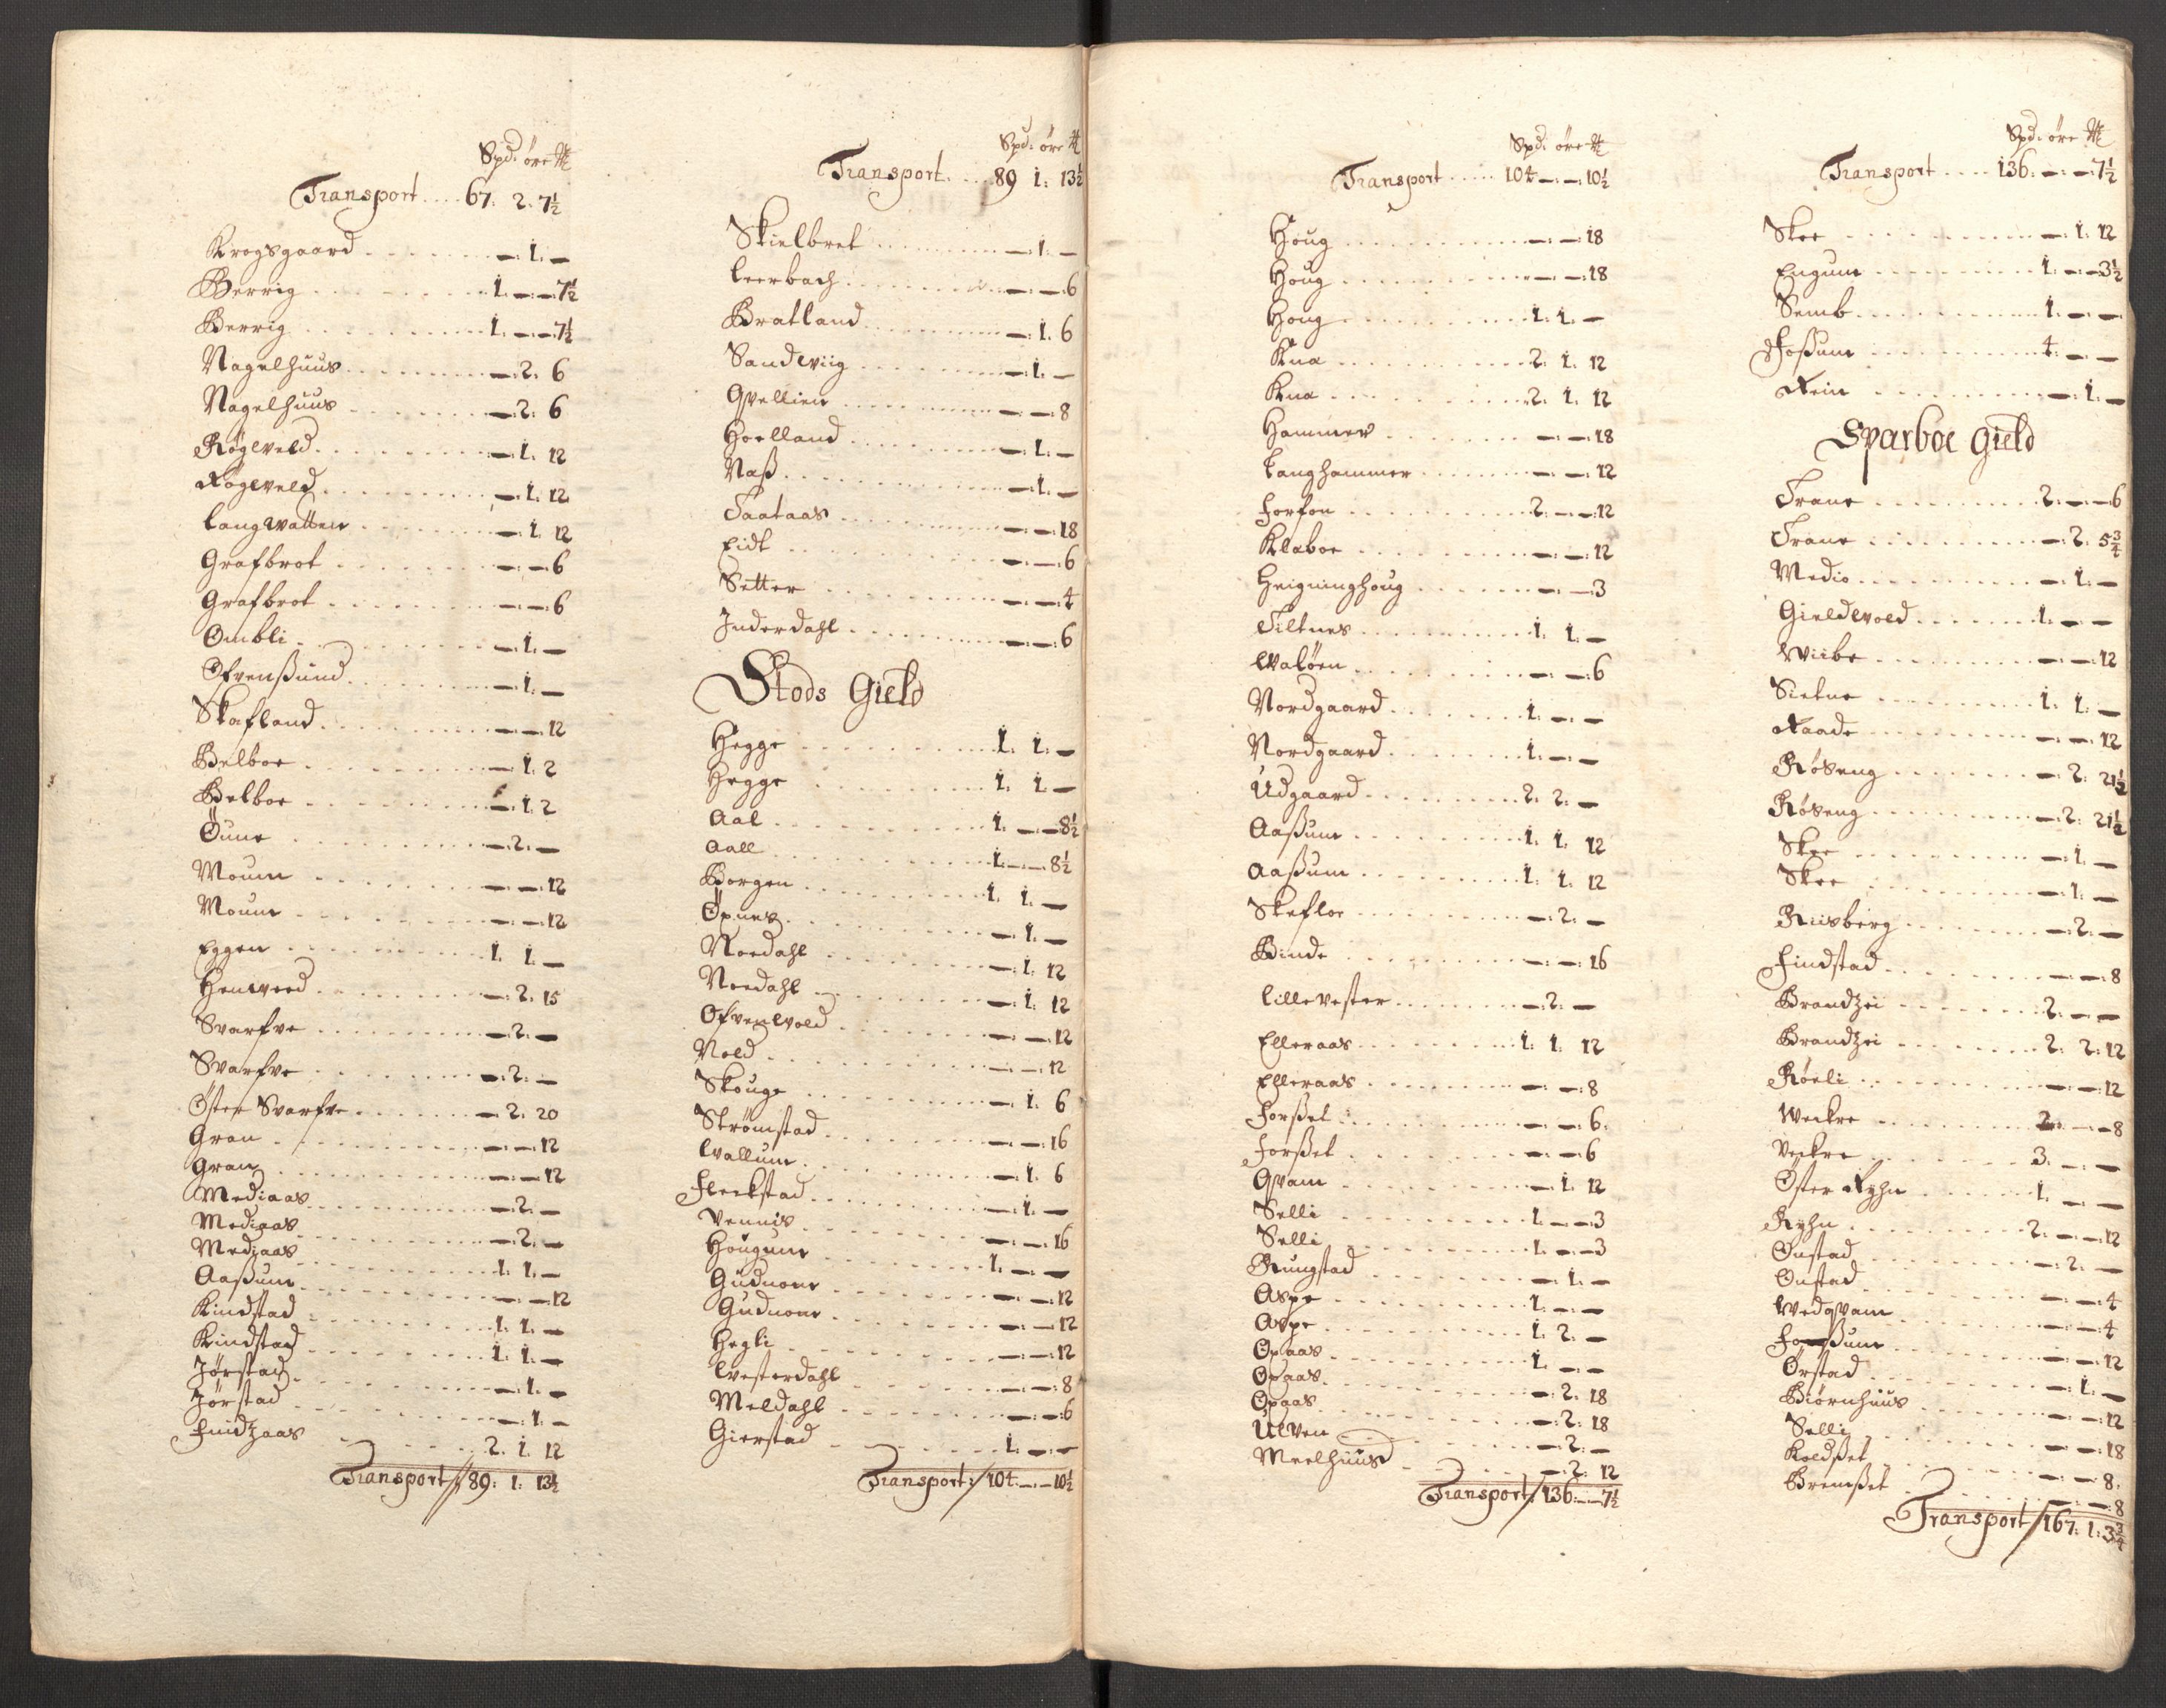 Spd: öre ₰
Transport .... 67. 2. 7½
Krogsgaard . . . . — 1. —
Berrig . . . . 1. — — 7½
Berrig . . . . 1. — — 7½
Nagelhuus . . . . — 2. 6
Nagelhuus . . . . — 2. 6
Røgeveld . . . . — 1. 12
Røgeveld . . . . — 1. 12
Langvatten . . . . — 1. 12
Grafbrot . . . . — — 6
Grafbrot . . . . — — 6
Ombli . . . . — 1. —
Ofvenßund . . . . — 1. —
Skafland . . . . — — 12
Belboe . . . . — 1. 2
Belboe . . . . — 1. 2
Öune . . . . — 2. —
Moum . . . . — — 12
Moum . . . . — — 12
Eggen . . . . 1. 1. —
Henveed . . . . — 2. 15
Svarfve . . . . — 2. —
Svarfve . . . . — 2. —
Öster Svarfve . . . . — 2. 20
Gran . . . . — — 12
Gran . . . . — — 12
Mediaas . . . . — 2. —
Mediaas . . . . — 2. —
Mediaas . . . . 1. 1. —
Aaßum . . . . — — 12
Kindstad . . . . 1. 1. —
Kindstad . . . . 1. 1. —
Jørstad . . . . — 1. —
Jørstad . . . . — 1. —
Findzaas . . . . 2. 1. 12
Transport // 89: 1: 13½
Spd: öre ₰
Transport .... 89 1: 13½
Skielbret . . . . — 1. —
Leerbach . . . . — — 6
Bratland . . . . — 1. 6
Sandviig . . . . — 1. —
Qvellien . . . . — — 8
Hoelland . . . . — 1. —
Naß . . . . — 1. —
Taataas . . . . — — 18
Eidt . . . . — — 6
Setter . . . . — — 4
Inderdahl . . . . — — 6
Stods Gield
Hegge . . . . 1. 1. —
Hegge . . . . 1. 1. —
Aal . . . . 1. — — 8½
Aall . . . . 1. — — 8½
Borgen . . . . 1. 1. —
Öpnes . . . . — 1. —
Noedahl . . . . — 1. 12
Noedahl . . . . — 1. 12
Ofvenvold . . . . — — 12
Vold . . . . — — 12
Skouge . . . . — 1. 6
Strömstad . . . . — — 16
Wallum . . . . — 1. 6
Fleckstad . . . . — 1. —
Vennis . . . . — — 16
Hougum . . . . 1. — —
Gudnoue . . . . — — 12
Gudnoue . . . . — — 12
Hegli . . . . — — 12
Westerdahl . . . . — — 8
Meldahl . . . . — — 6
Gierstad . . . . 1. — —
Transport: / 104. — — 10½
Spd: öre ₰
Transport ..... 104 — — 10½
Houg . . . . — — 18
Houg . . . . — — 18
Houg . . . . 1. 1. —
Kna . . . . 2. 1. 12
Kna . . . . 2. 1. 12
Hammer . . . . — — 18
Langhammer . . . . — — 12
Forfon . . . . 2. — — 12
Klaboe . . . . — — 12
Heigninghoug . . . . — — 3
Tiltnes . . . . 1. 1. —
Waløen . . . . — — 6
Nordgaard . . . . 1. — —
Nordgaard . . . . 1. — —
Udgaard . . . . 2. 2. —
Aaßum . . . . 1. 1. 12
Aaßum . . . . 1. 1. 12
Skefloe . . . . — 2. —
Binde . . . . — — 16
Lillevester . . . . — 2. —
Elleraas . . . . 1. 1. 12
Elleraas . . . . — — 8
Forßet . . . . — — 6.
Forßet . . . . — — 6
Qvam . . . . — 1. 12
Selli . . . . 1. — — 3
Selli . . . . 1. — — 3
Rungstad . . . . — 1. —
Aspe . . . . 1. — —
Aspe . . . . 1. 2. —
Opaas . . . . 1. — —
Opaas . . . . — 2. 18
Opaas . . . . — 2. 18
Ulven . . . . — 2. —
Meelhuus . . . . — 2. 12
Transport / 136. — — 7½
Spd: öre ₰
Transport .... 136. — — 7½
Skee . . . . — 1. 12
Engum . . . . 1. — — 3½
Semb . . . . 1. — —
Foßum . . . . 4. — —
Rein . . . . — 1. —
Sparboe Gield
Trane . . . . 2. — — 6
Trane . . . . — 2. 5¾
Medio . . . . — 1. —
Gieldvold . . . . 1. — —
Wiibe . . . . — — 12
Sielne . . . . 1. 1. —
Raade . . . . — — 12
Røseng . . . . — 2. 21½
Røseng . . . . — 2. 21½
Skee . . . . — 1. —
Skee . . . . — 1. —
Riisberg . . . . — 2. —
Findstad . . . . — — 8
Brandzei . . . . 2. — —
Brandzei . . . . 2. 2. 12
Røeli . . . . — — 12
Weckre . . . . 2. — — 8
Veckre . . . . 3. — —
Öster Ryhn . . . . 1. — —
Ryhn . . . . 2. — — 12
Onstad . . . . — 2. —
Onstad . . . . — — 4
Wedqvam . . . . — — 4
Foßum . . . . — — 12
Örstad . . . . — 1. —
Biörnhuus . . . . — — 12
Selli . . . . — — 18
Koldßet . . . . — — 8.
Bremßet . . . . — — 8
Transport / 167. 1: 3¾